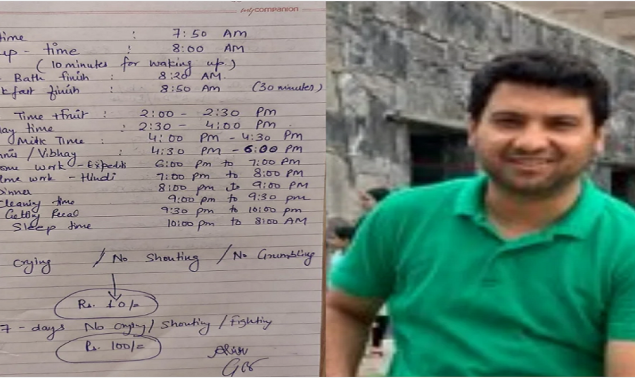 my companion
time : 7:50 AM
up - time : 8:00 AM
(10 minutes for waking up)
Bath finish : 8:20 AM
kfast finish : 8:50 AM (30 minutes)
Time + fruit : 2:00 - 2:30 Pm
ay time : 2:30 - 4:00 Pm
Milk Time : 4:00 PM - 4:30 Pm
/ Vibhav : 4:30 PM - 6:00 PM
ome work - 6:00 pm to 7:00 PM
ome work - Hindi 7:00 pm to 8:00 PM
inner 8:00 pm to 9:00 PM
Cleaning time 9:00 pm to 9:30 pm
9:30 pm to 10:00 pm
Sleep time 10:00 pm to 8:00 AM
Crying / No Shouting / No Grumbling
Rs. 10/=
7 - days No Crying / Shouting / Fighting
Rs. 100/=